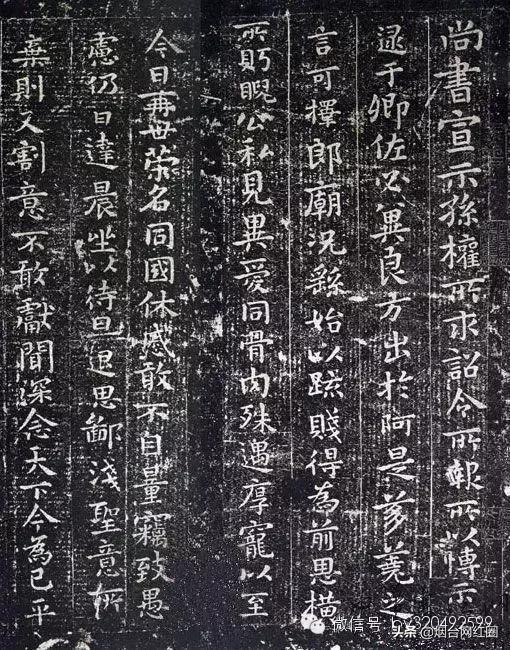 尚書宣示孫權所求詔令所報所以博示
逮于卿佐必冀良方出於阿是芻蕘之
言可擇郎廟況繇始以疏賤得為前恩橫
所眄睨公私見異愛同骨肉殊遇厚寵以至
今日再世榮名同國休慼敢不自量竊致愚
慮仍日達晨坐以待旦退思鄙淺聖意所
棄則又割意不敢獻聞深念天下今為已平
微信号: bv320492599
头条 @烟台网红圈